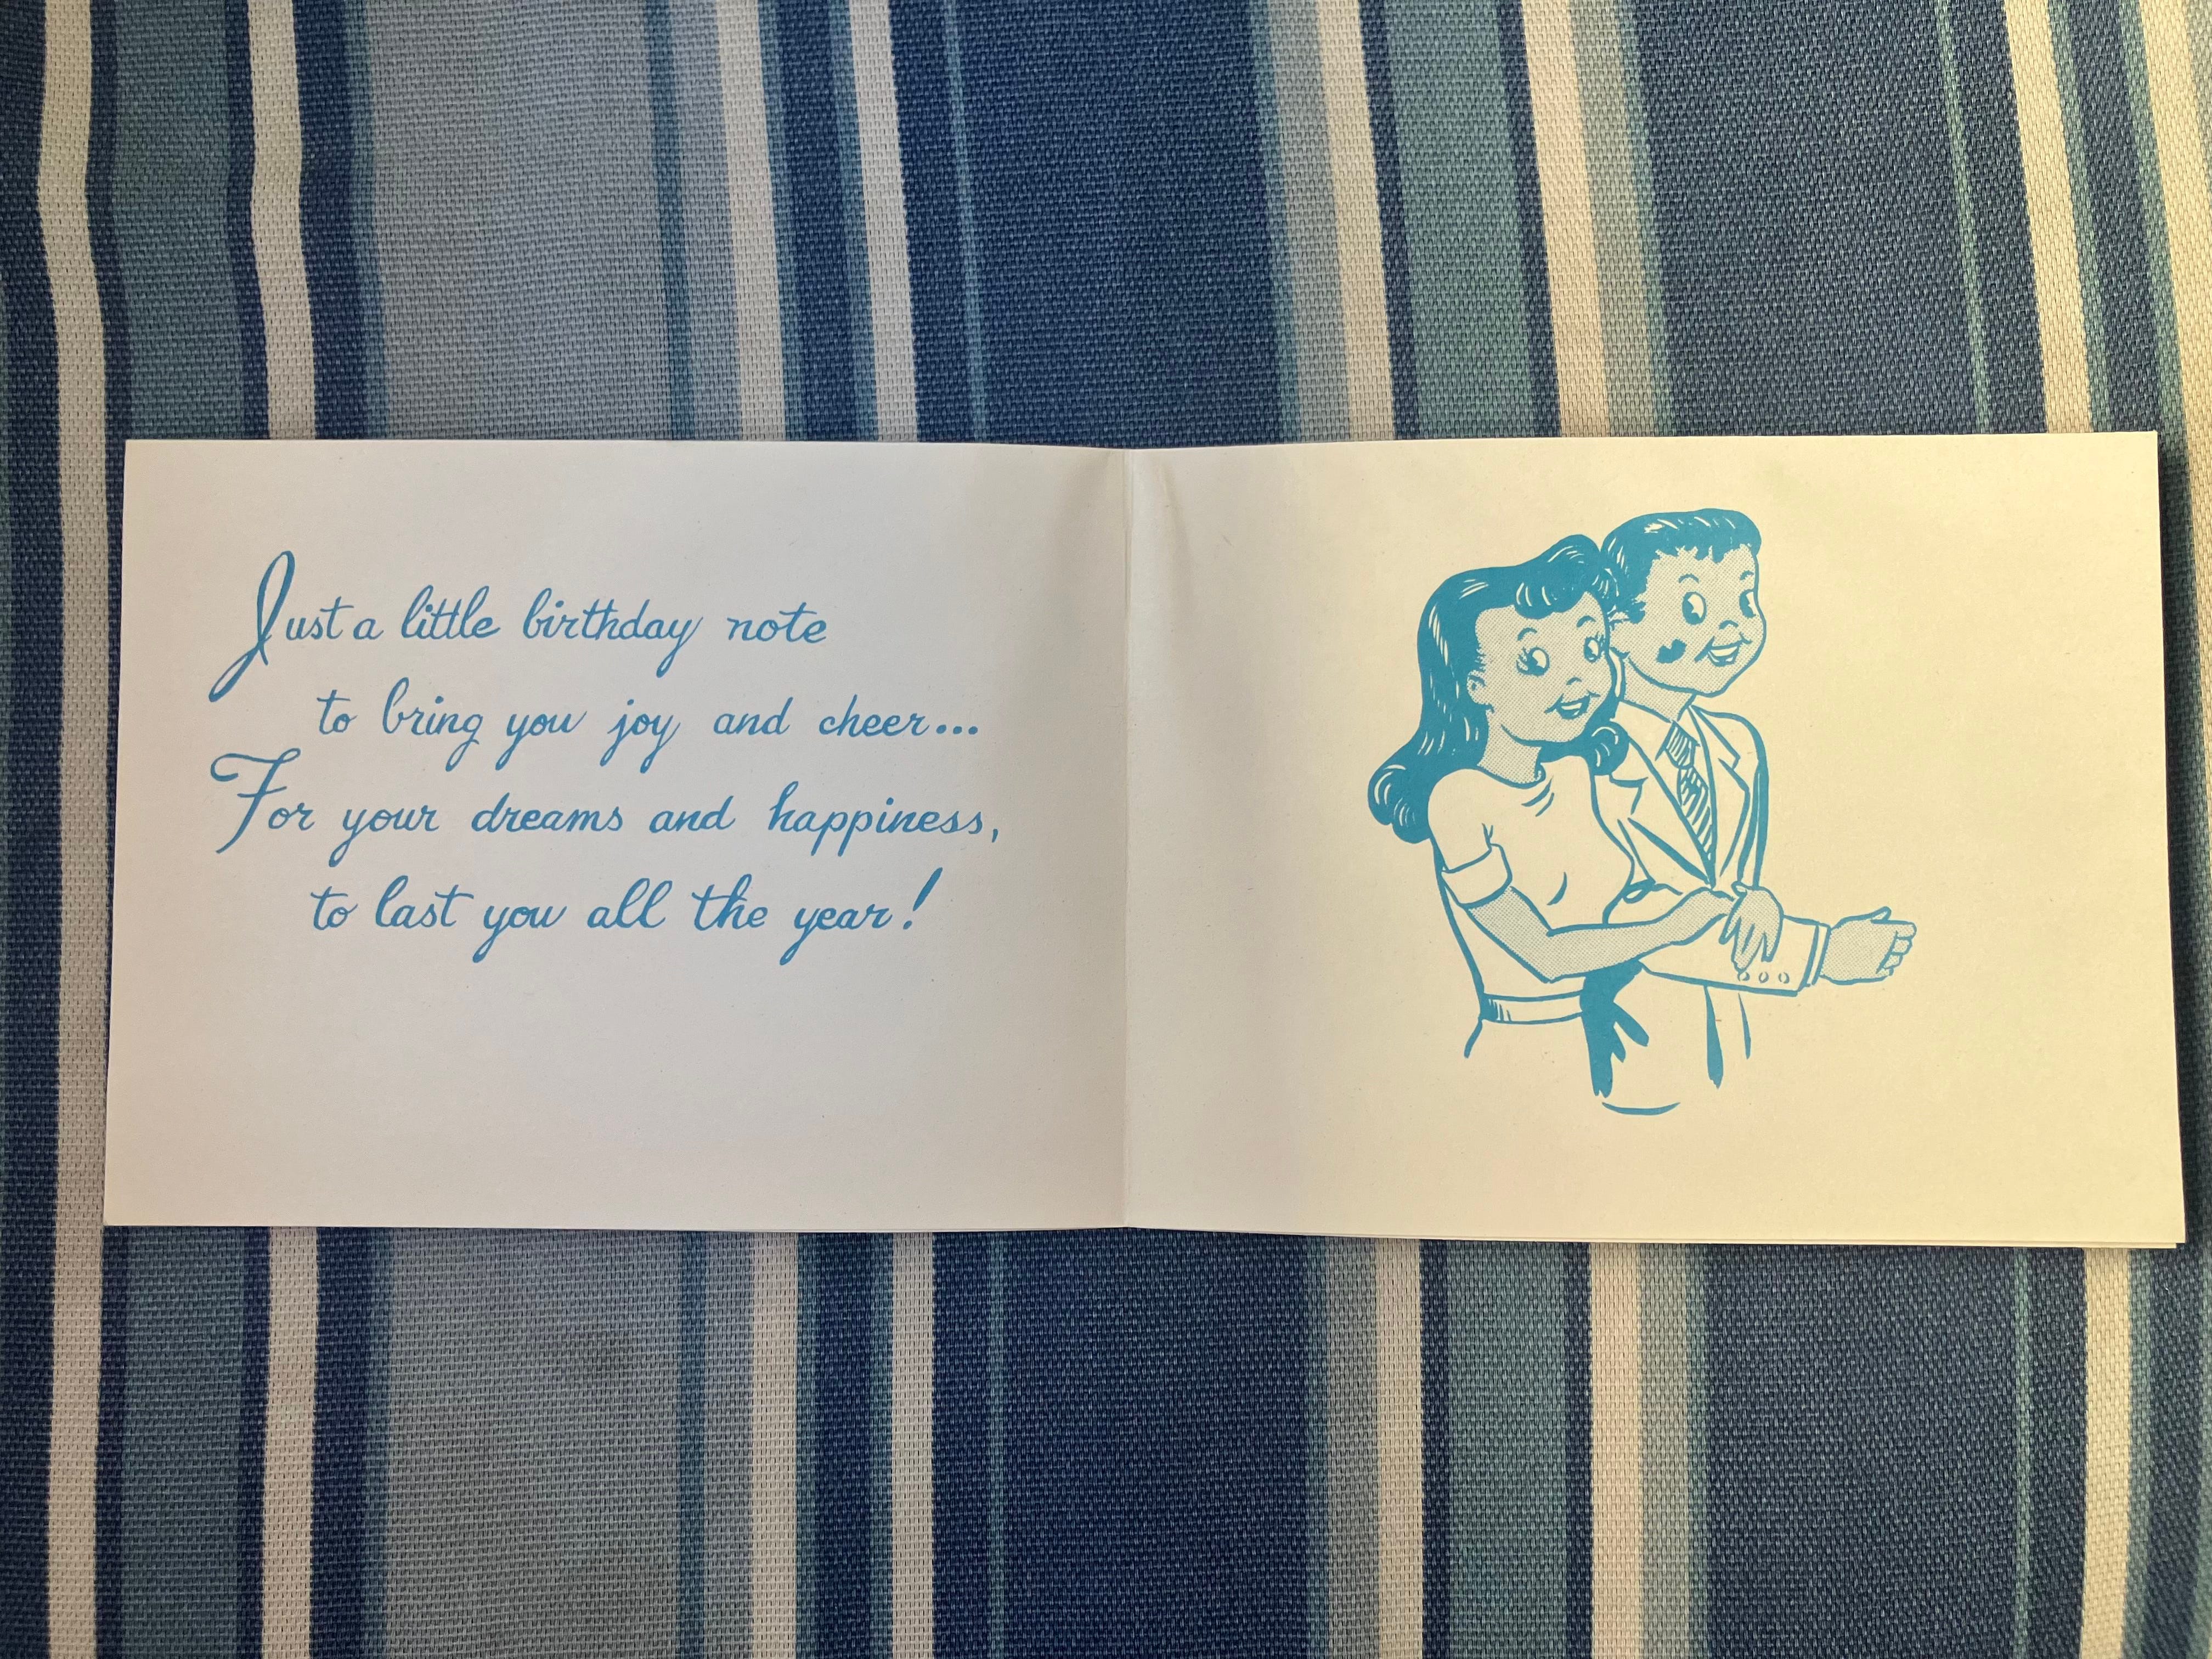 Just a little birthday note
to bring you joy and cheer...
For your dreams and happiness,
to last you all the year!